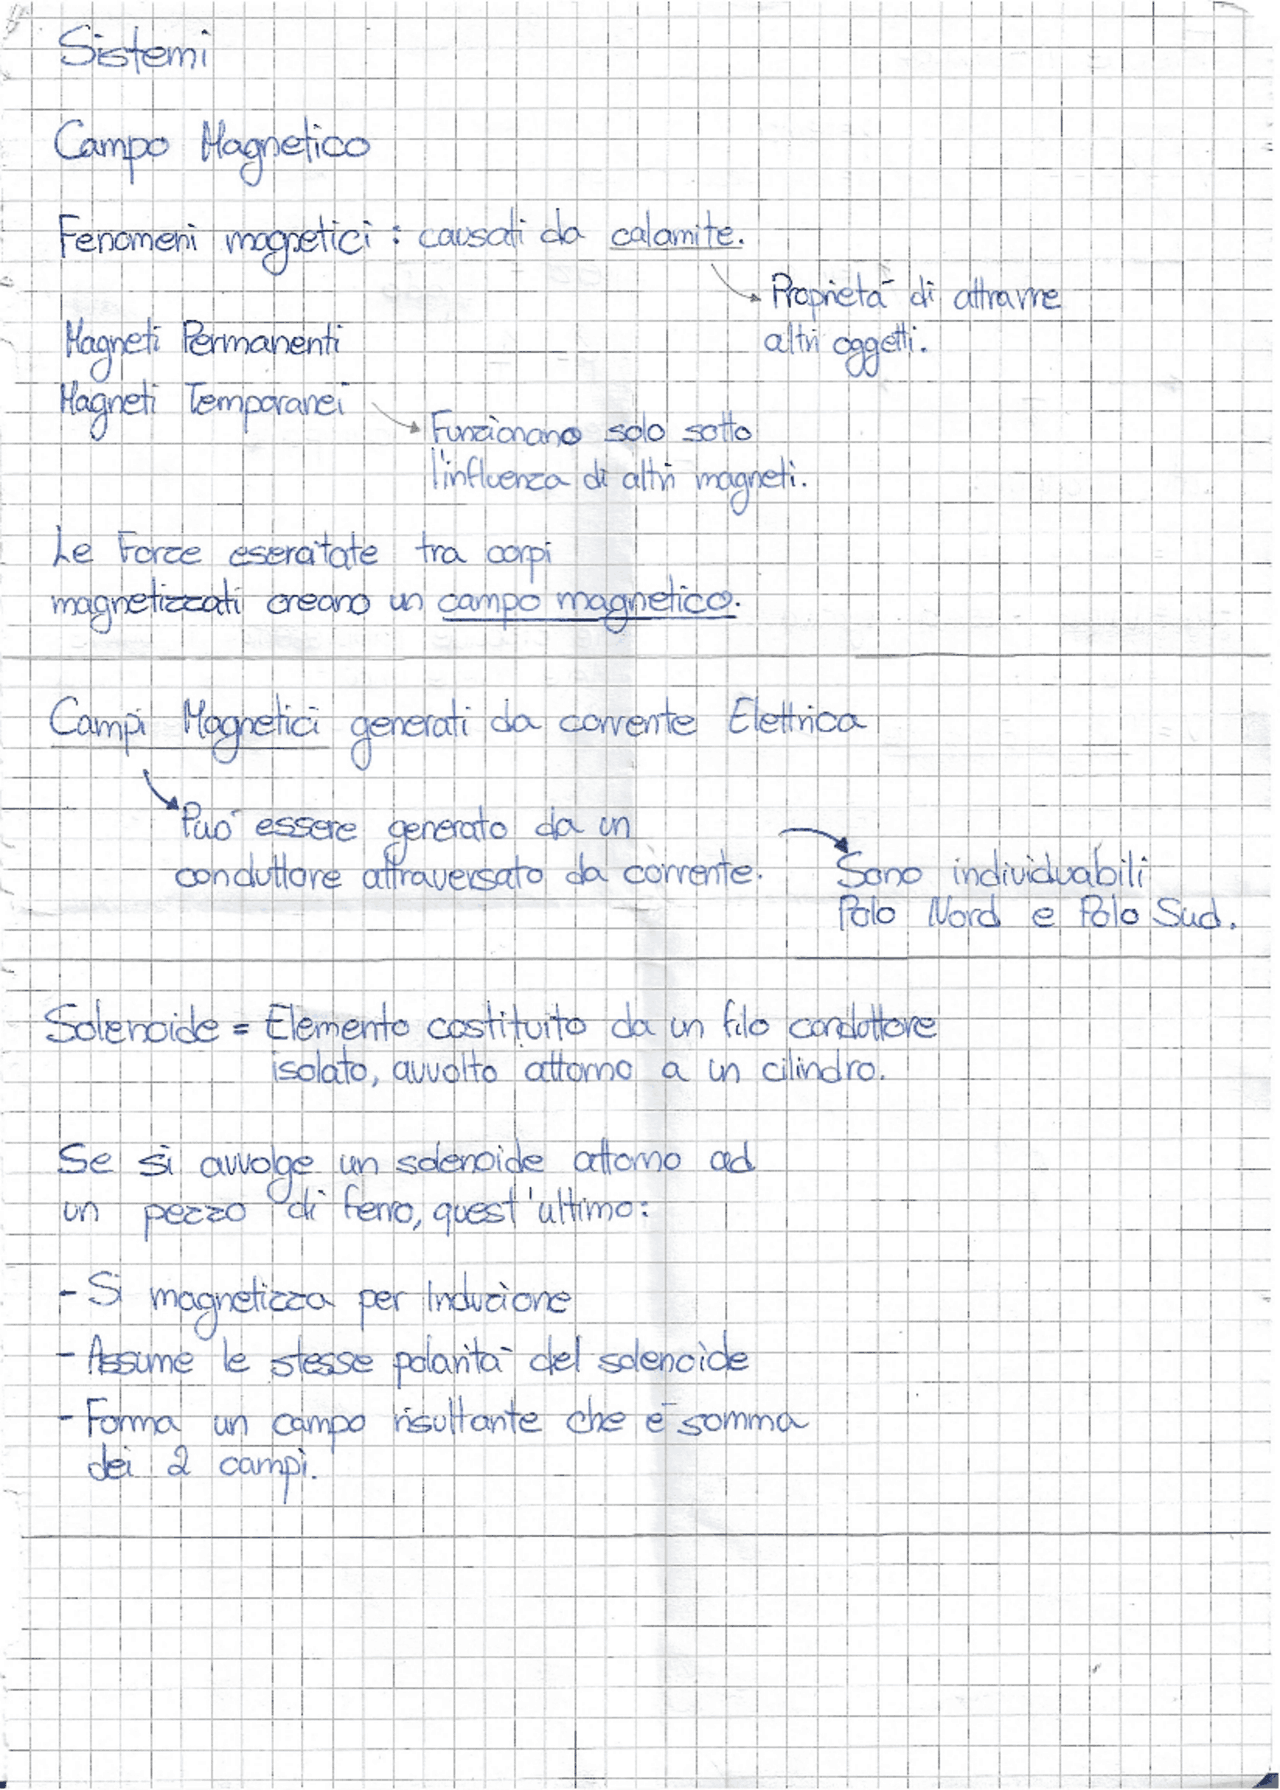 Sistemi
Campo Magnetico
Fenomeni magnetici : causati da calamite.
Proprietà di attrarre
altri oggetti.
Magneti Permanenti
Magneti Temporanei
Funzionano solo sotto
l'influenza di altri magneti.
Le Forze esercitate tra corpi
magnetizzati creano un campo magnetico.
Campi Magnetici generati da corrente Elettrica
Può essere generato da un
conduttore attraversato da corrente.
Sono individuabili
Polo Nord e Polo Sud.
Solenoide = Elemento costituito da un filo conduttore
isolato, avvolto attorno a un cilindro.
Se si avvolge un solenoide attorno ad
un pezzo di ferro, quest'ultimo:
- Si magnetizza per Induzione
- Assume le stesse polarità del solenoide
- Forma un campo risultante che è somma
dei 2 campi.